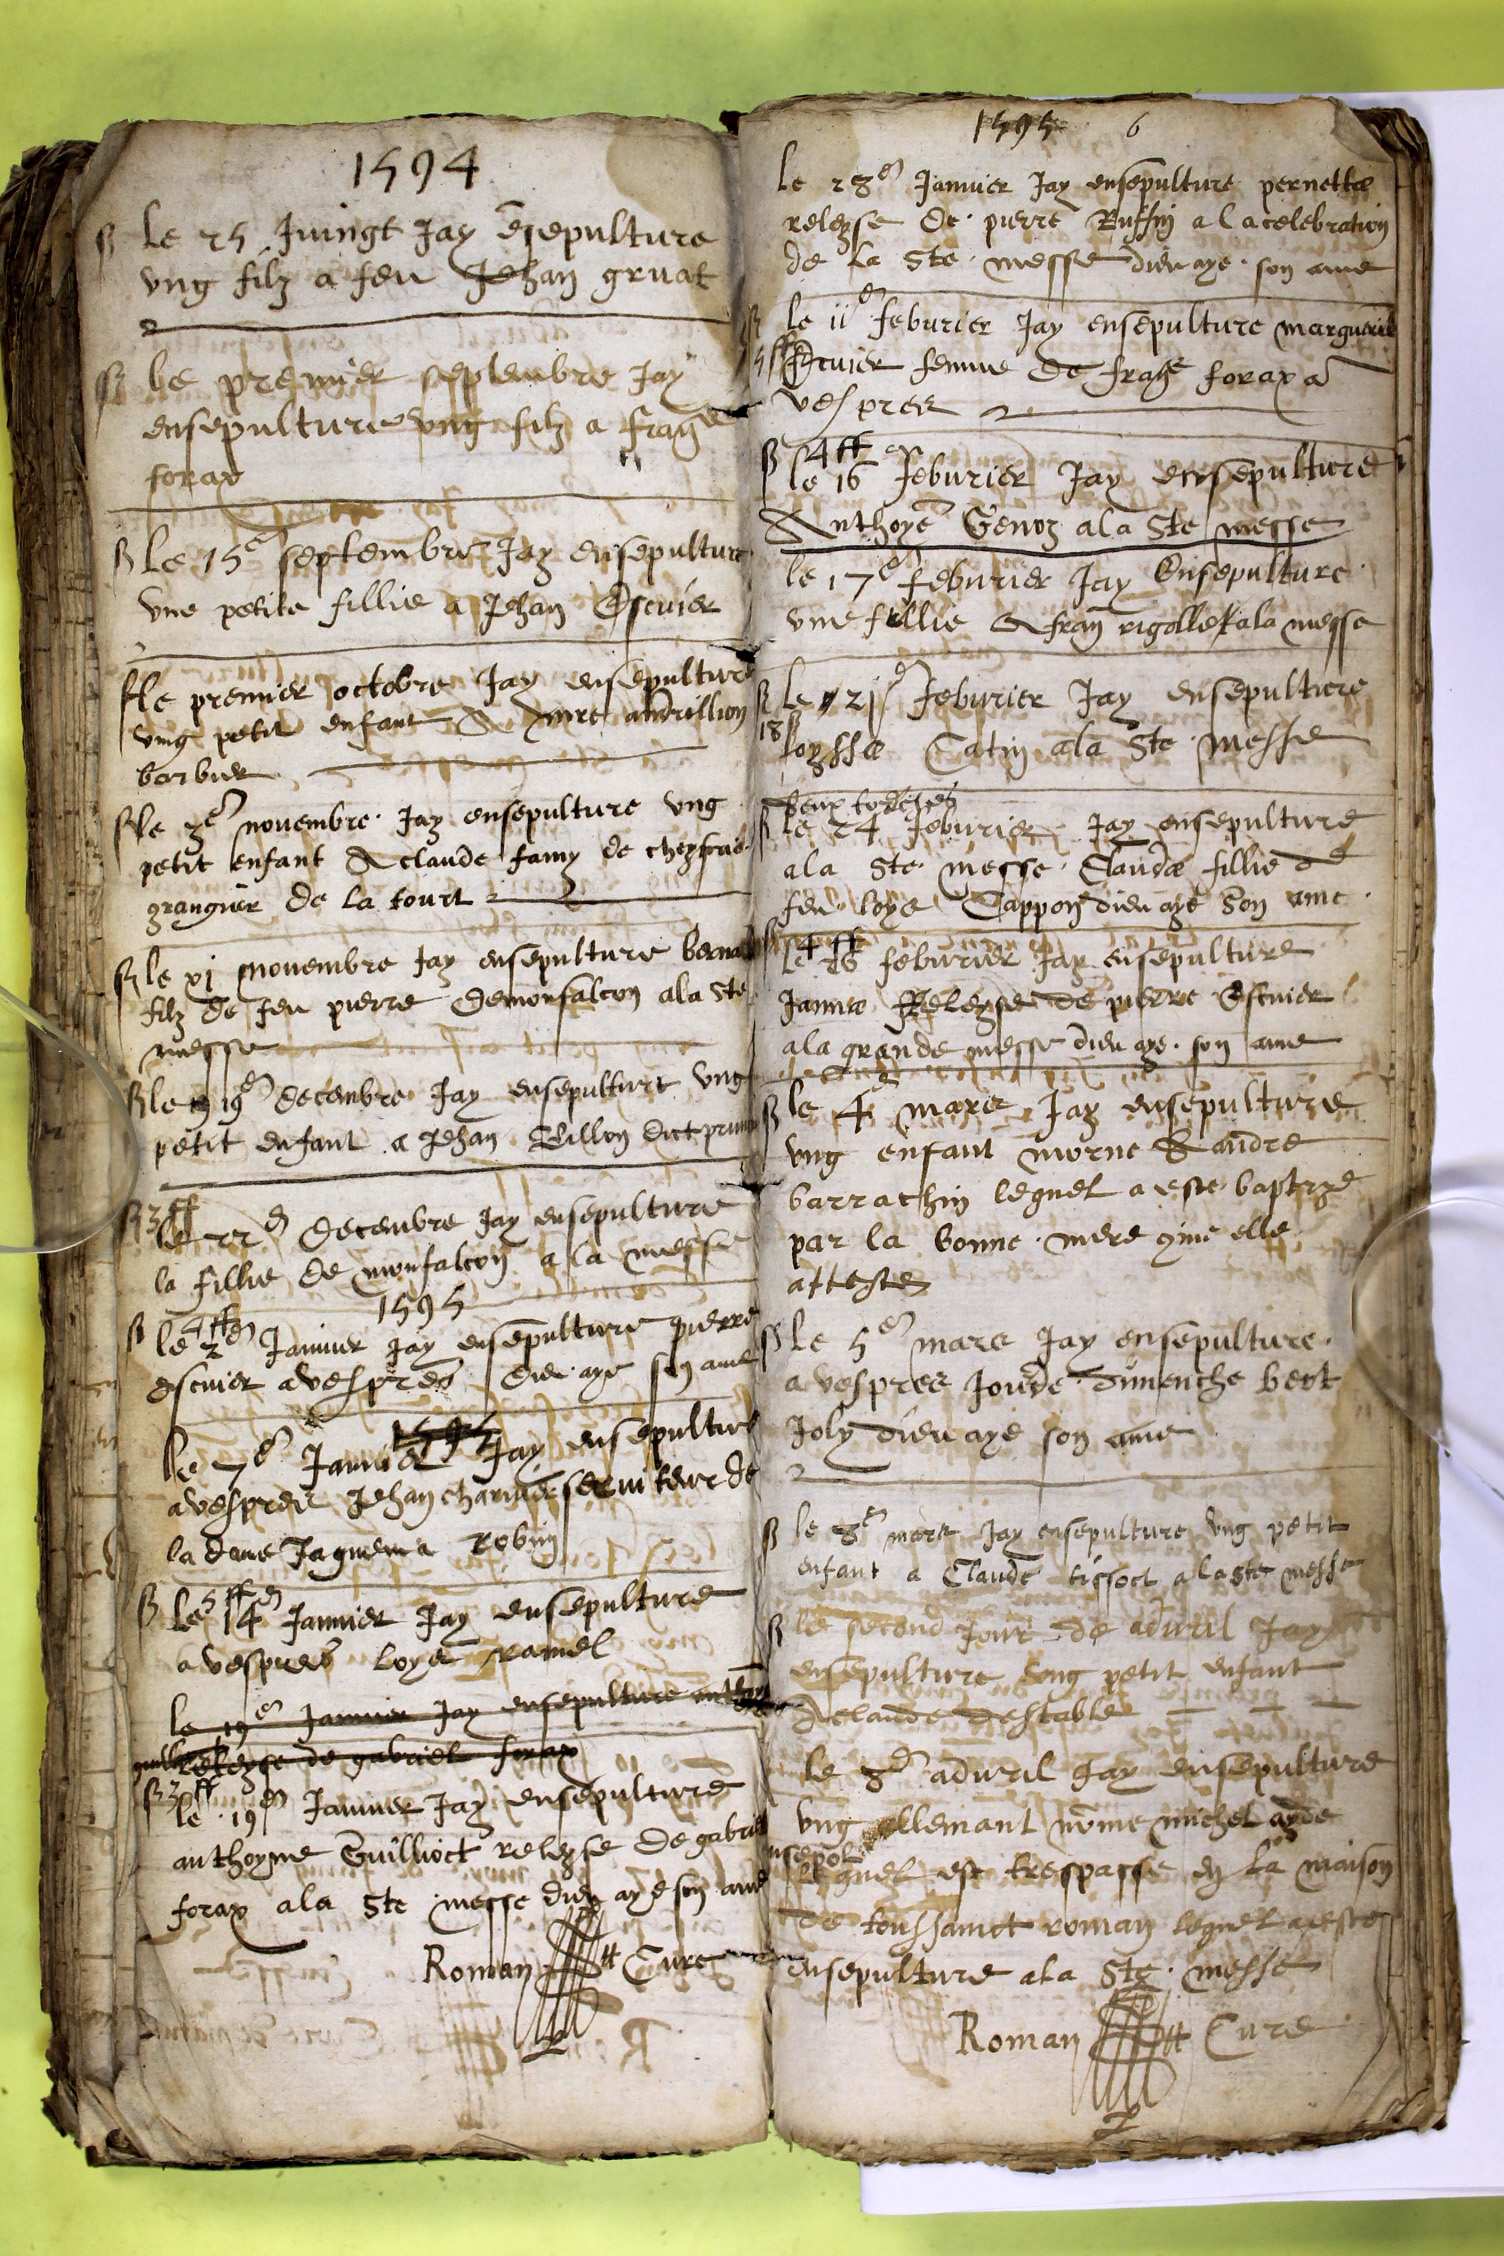 1594
le 25 Juingt Jay ēsepulture
vng filz a feu Jehan gruat
le premier septembre Jay
ensepulture vng filz a frāȳ
forax
le 15e septembre Jay ensepulture
vne petite fillie a Jehan Escuier
le premier octobre Jay ensepulture
vng petit enfant A andrillion
barbier
le 3e novembre Jay ensepulture vng
petit enfant A claude famy de
grangier de la tourt
le xj novembre Jay ensepulture
filz de feu pierre Demonfalcon a la ste
messe
le 19e decembre Jay ensepulture vng
petit enfant a Jehan Billon dict
3 ff
le 22e decembre Jay ensepulture
la fillie de monfalcon a la messe
1595
4 ff
le 2e Janvier Jay ensepulture pierre
escuier a vespres dieu aye son ame
1595
le 7e Janvier Jay ensepulture
a vespres Jehan serviteur de
la dame Jaquema Robin
5 ff
le 14e Janvier Jay ensepulture
a vespres loys ramel
le 19e Janvier Jay ensepulture
releyse de gabriel forax
3 ff
le 19e Janvier Jay ensepulture
anthoyne Guillioct releyse de gabriel
forax a la ste messe dieu aye son ame
Roman Cure
1595 6
le 28e Janvier Jay ensepulture pernette
releyse de pierre Ruffin a la celebration
de la ste messe dieu aye son ame
le 11e feburier Jay ensepulture marguerite
5 ff
Escuier femme de frāȳ forax a
vespres
4 ff
le 16e feburier Jay ensepulture
Anthoyē Genoz a la ste messe
le 17e feburier Jay Ensepulture
vne fillie A frāȳ rigollet a la messe
le 21e feburier Jay ensepulture
18
loysse Catin a la ste messe
deux torches
le 24 feburier Jay ensepulture
a la ste messe Clauda fillie de
feu loys Cappon dieu aye son ame
4 ff
le feburier Jay ensepulture
Janna Releyse de pierre Escuier
a la grande messe dieu aye son ame
le 4e mars Jay ensepulture
vng enfant morne A andre
barrachin lequel a este baptize
par la bonne mere come elle
atteste
le 5e mars Jay ensepulture
a vespres Jour de dimenche bert
Joly dieu aye son ame
le 8e mars Jay ensepulture vng petit
enfant a Claude tissoct a la ste messe
le second Jour de advril Jay
ensepulture vng petit enfant
A claude destable
le 8e advril Jay ensepulture
vng allemant nōme michel
lequel est trespasse en la maison
de toussainct roman lequel a este
ensepulture a la ste messe
Roman Cure